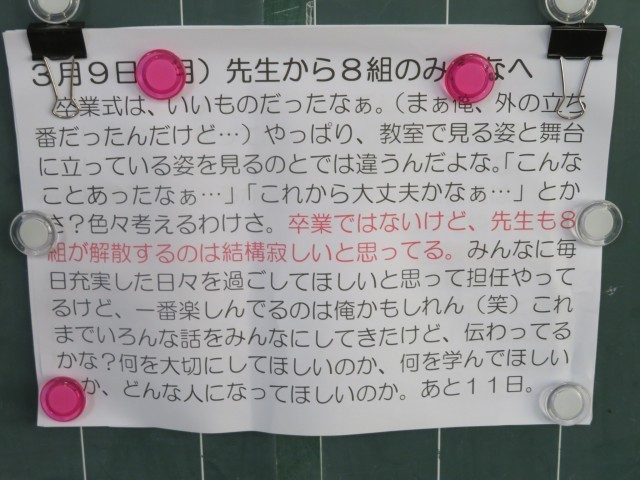 3月9日(月)先生から8組のみなへ
卒業式は、いいものだったなぁ。(まぁ俺、外の立ち
番だったんだけど…)やっぱり、教室で見る姿と舞台
に立っている姿を見るのとでは違うんだよな。「こんな
ことあったなぁ…」「これから大丈夫かなぁ…」とか
さ?色々考えるわけさ。卒業ではないけど、先生も8
組が解散するのは結構寂しいと思ってる。みんなに毎
日充実した日々を過ごしてほしいと思って担任やって
るけど、一番楽しんでるのは俺かもしれん(笑)これ
までいろんな話をみんなにしてきたけど、伝わってる
かな?何を大切にしてほしいのか、何を学んでほしい
か、どんな人になってほしいのか。あと11日。